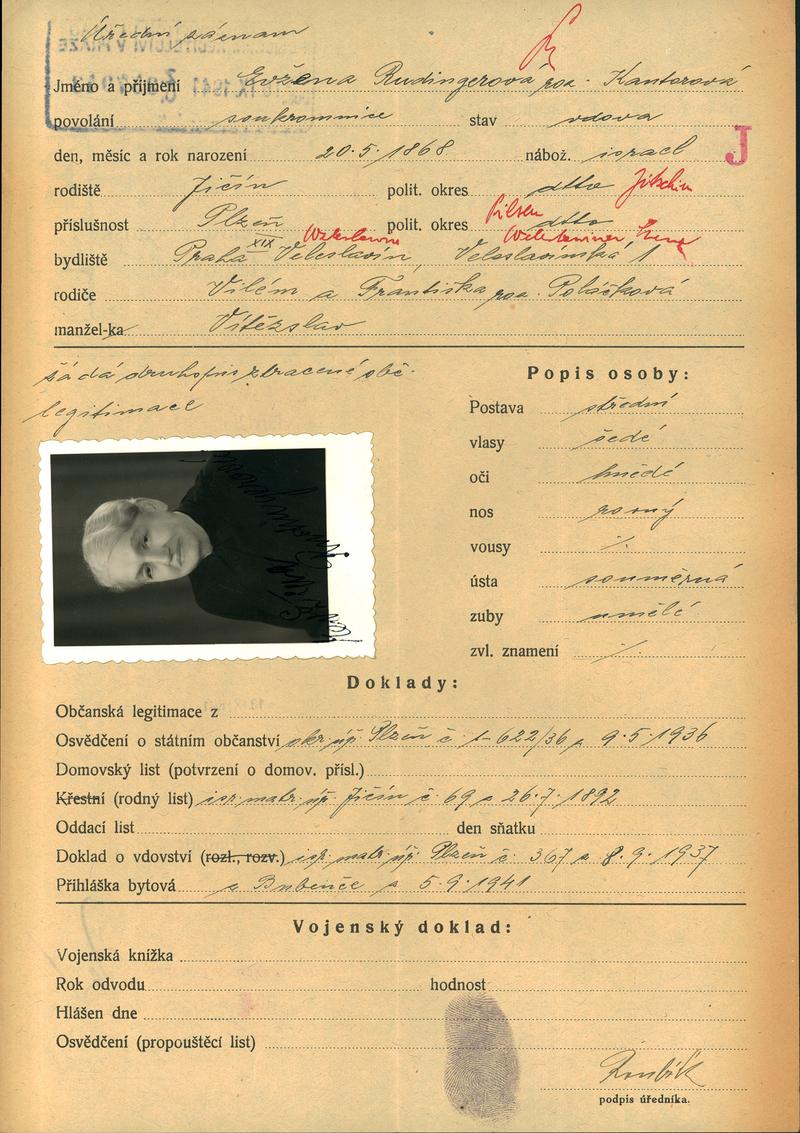 Úřední záznam
Jméno a příjmení Evžena Rudingerová roz. Kantorová
povolání soukromnice stav vdova
den, měsíc a rok narození 20.5.1868 nábož. israel J
rodiště Jičín polit. okres dtto Jitschin
příslušnost Plzeň polit. okres Pilsen dtto
bydliště Praha XIX Veleslavín, Veleslavínská 1
rodiče Vilém a Františka roz. Poláčková
manžel-ka Vítězslav
žádá druhopis ztracené obč.
legitimace
Popis osoby:
Postava střední
vlasy šedé
oči hnědé
nos rovný
vousy ·/.
ústa souměrná
zuby umělé
zvl. znamení ·/.
Doklady:
Občanská legitimace z
Osvědčení o státním občanství okr. úř. Plzeň č. 1-622/36 z 9.5.1936
Domovský list (potvrzení o domov. přísl.)
Křestní (rodný list) isr. matr. úř. Jičín č. 69 z 26.7.1892
Oddací list den sňatku
Doklad o vdovství (rozl., rozv.) isr. matr. úř. Plzeň č. 367 z 8.9.1937
Přihláška bytová z Bubenče z 5.9.1941
Vojenský doklad:
Vojenská knížka
Rok odvodu hodnost
Hlášen dne
Osvědčení (propouštěcí list)
podpis úředníka.